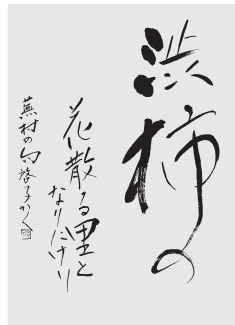 渋柿の
花散る里と
なりにけり
蕪村の句 啓子かく